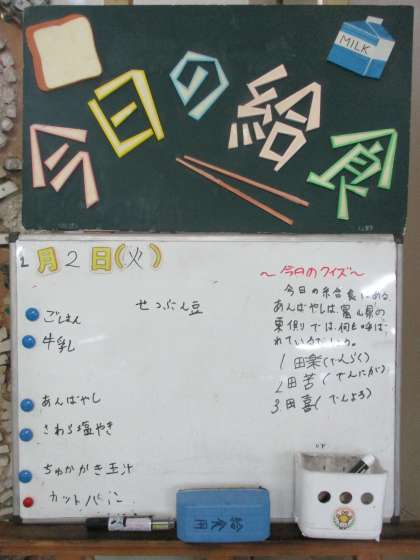 今日の給食
MILK
2月2日(火)
ごはん
せつぶん豆
牛乳
あんばやし
さわら塩やき
ちゅかかき玉汁
カットパイン
～今日のクイズ～
今日の給食にある
あんばやしは、富山県の
東側では何と呼ば
れているでしょう。
1 田楽(でんらく)
2 田苦(でんにがく)
3 田喜(でんよろ)
給食用